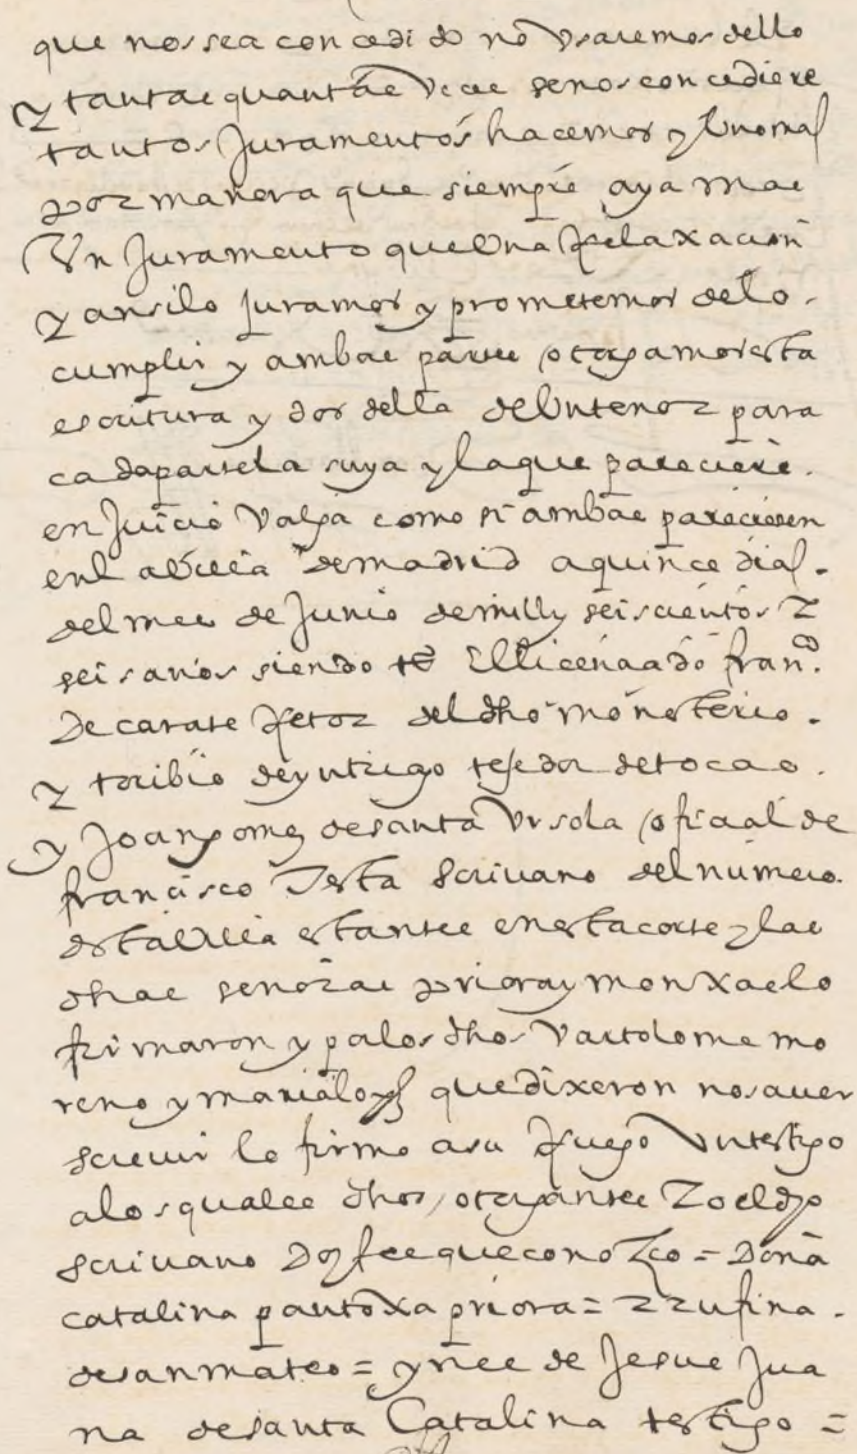 que nos sea concedido no usaremos dello
y tantas quantas veces se nos concediere
tantos Juramentos hacemos y uno mas
por manera que siempre aya mas
Un Juramento que una Relaxacion
y ansi lo juramos y prometemos de lo
cumplir y ambas partes otorgamos esta
escritura y dos della de un tenor para
cada parte la suya y la que pareciere
en Juicio valga como si ambas pareciesen
en la villa de madrid a quince dias
del mes de Junio de mill y seiscientos y
seis años siendo tºs El licenciado franco
De carate Retor del dho monesterio
y toribio de yntrigo tejedor de tocas
y Joan gomez de santa Ursola oficial de
francisco Testa scrivano del numero
desta villa estantes en esta corte y las
dhas señoras priora y monxas lo
firmaron y pa los dhos Vartolome mo
reno y maria lopez que dixeron no saver
screvir lo firmo a su Ruego Un testigo
a los quales dhos otorgantes Yo el dho
scrivano Doy fee que conozco = Doña
catalina pantoxa priora = Rrufina
de san mateo = ynes de Jesus Jua
na de santa Catalina testigo =